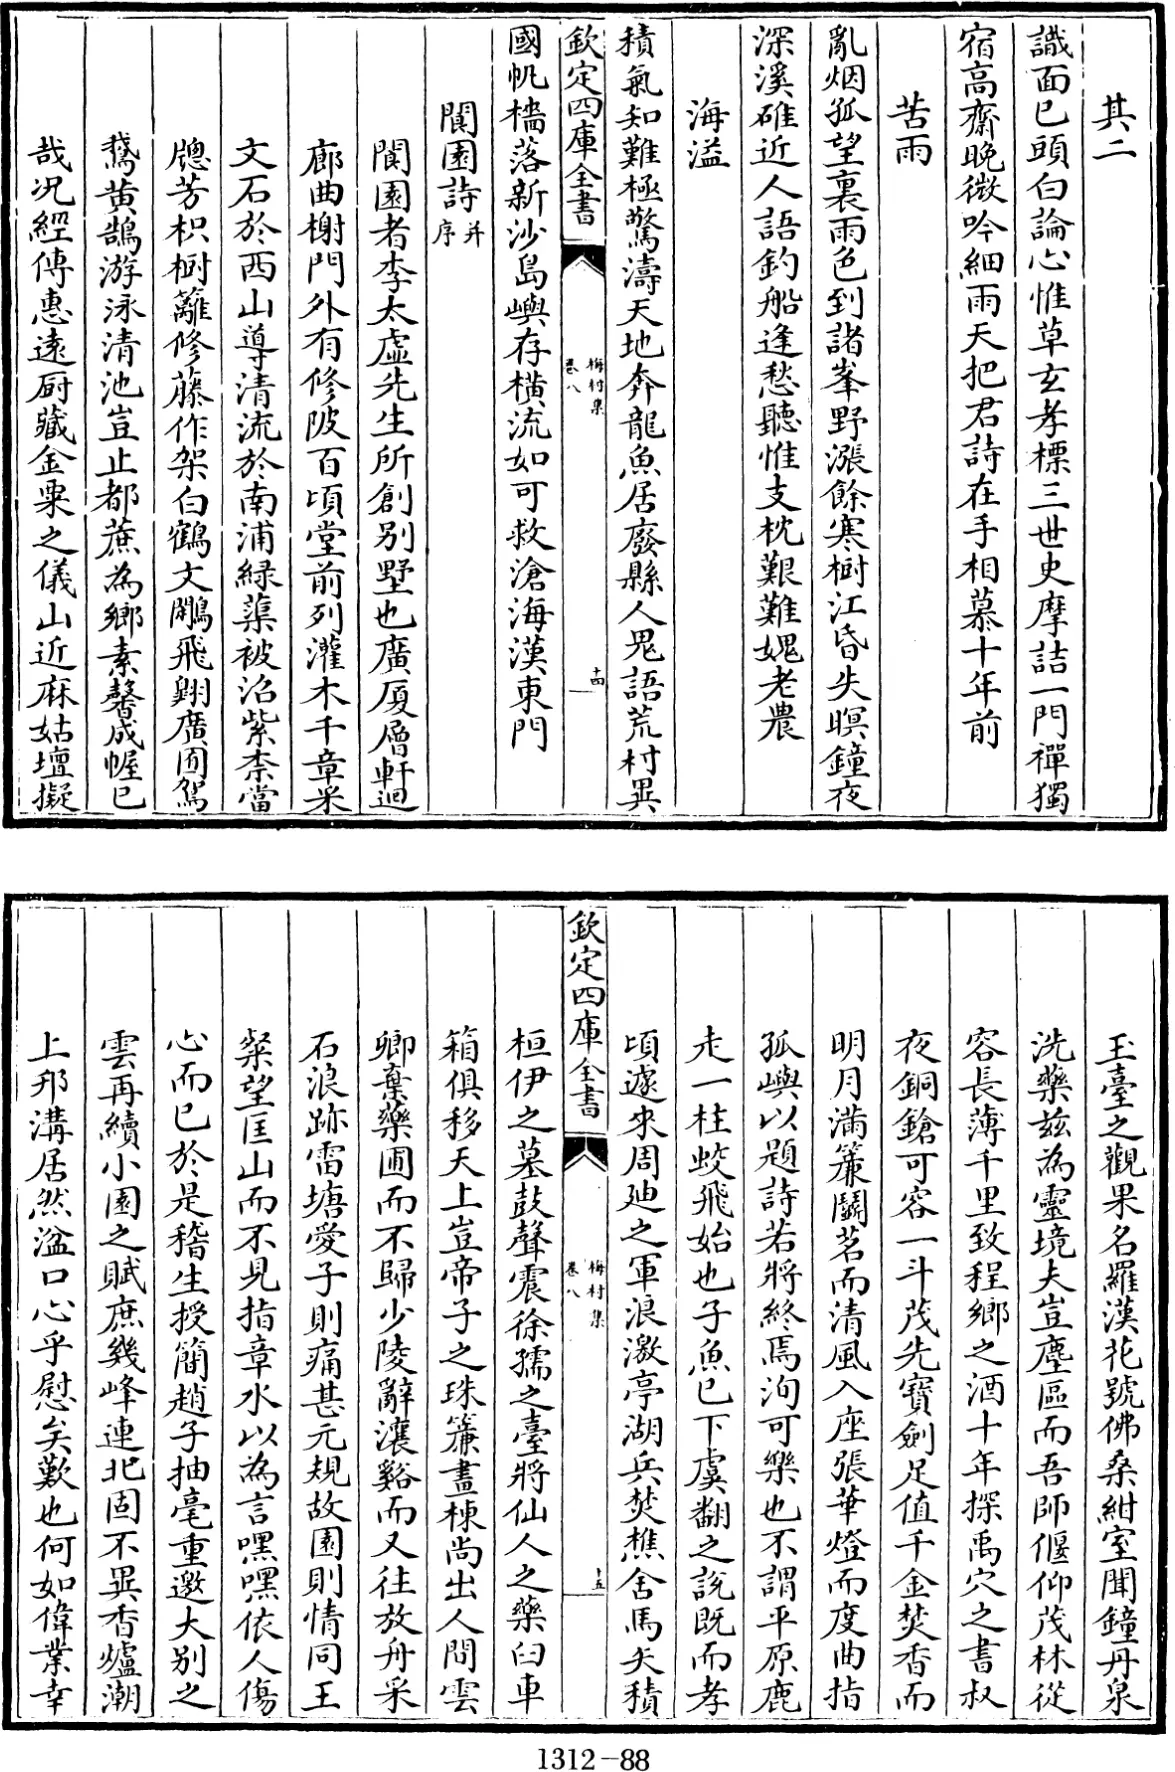 其二
識面已頭白論心惟草玄孝標三世史摩詰一門禪獨
宿高齋晚微吟細雨天把君詩在手相慕十年前
苦雨
亂烟孤望裏雨色到諸峯野漲餘寒樹江昏失暝鐘夜
深溪碓近人語釣船逢愁聽惟支枕艱難媿老農
海溢
積氣知難極驚濤天地奔龍魚居廢縣人鬼語荒村異
欽定四庫全書
梅村集
卷八
十四
國帆檣落新沙島嶼存橫流如可救滄海漢東門
閬園詩并序
閬園者李太虛先生所創别墅也廣厦層軒迴
廊曲榭門外有修陂百頃堂前列灌木千章采
文石於西山導清流於南浦緑蕖被沿紫柰當
牕芳枳樹籬修藤作架白鶴文鷴飛翺廣囿鴐
鵞黄鵠游泳清池豈止都蔗為鄉素馨成幄已
哉况經傳惠遠厨藏金粟之儀山近麻姑壇擬
玉臺之觀果名羅漢花號佛桑紺室聞鐘丹泉
洗藥兹為靈境夫豈塵區而吾師偃仰茂林從
容長薄千里致程鄉之酒十年探禹穴之書叔
夜銅鎗可容一斗茂先寶劍足值千金焚香而
明月滿簾鬭茗而清風入座張華燈而度曲指
孤嶼以題詩若將終焉洵可樂也不謂平原鹿
走一柱蛟飛始也子魚已下虞翻之說既而孝
頃遽來周廸之軍浪激亭湖兵焚樵舍馬矢積
欽定四庫全書
梅村集
卷八
十五
桓伊之墓鼓聲震徐孺之臺將仙人之藥臼車
箱俱移天上豈帝子之珠簾畫棟尚出人間雲
卿棄藥圃而不歸少陵辭瀼谿而又往放舟采
石浪跡雷塘愛子則痛甚元規故園則情同王
粲望匡山而不見指章水以為言嘿嘿依人傷
心而已於是稽生授簡趙子抽毫重邀大别之
雲再續小園之賦庶幾峰連北固不異香爐潮
上邗溝居然湓口心乎慰矣歎也何如偉業幸
1312-88